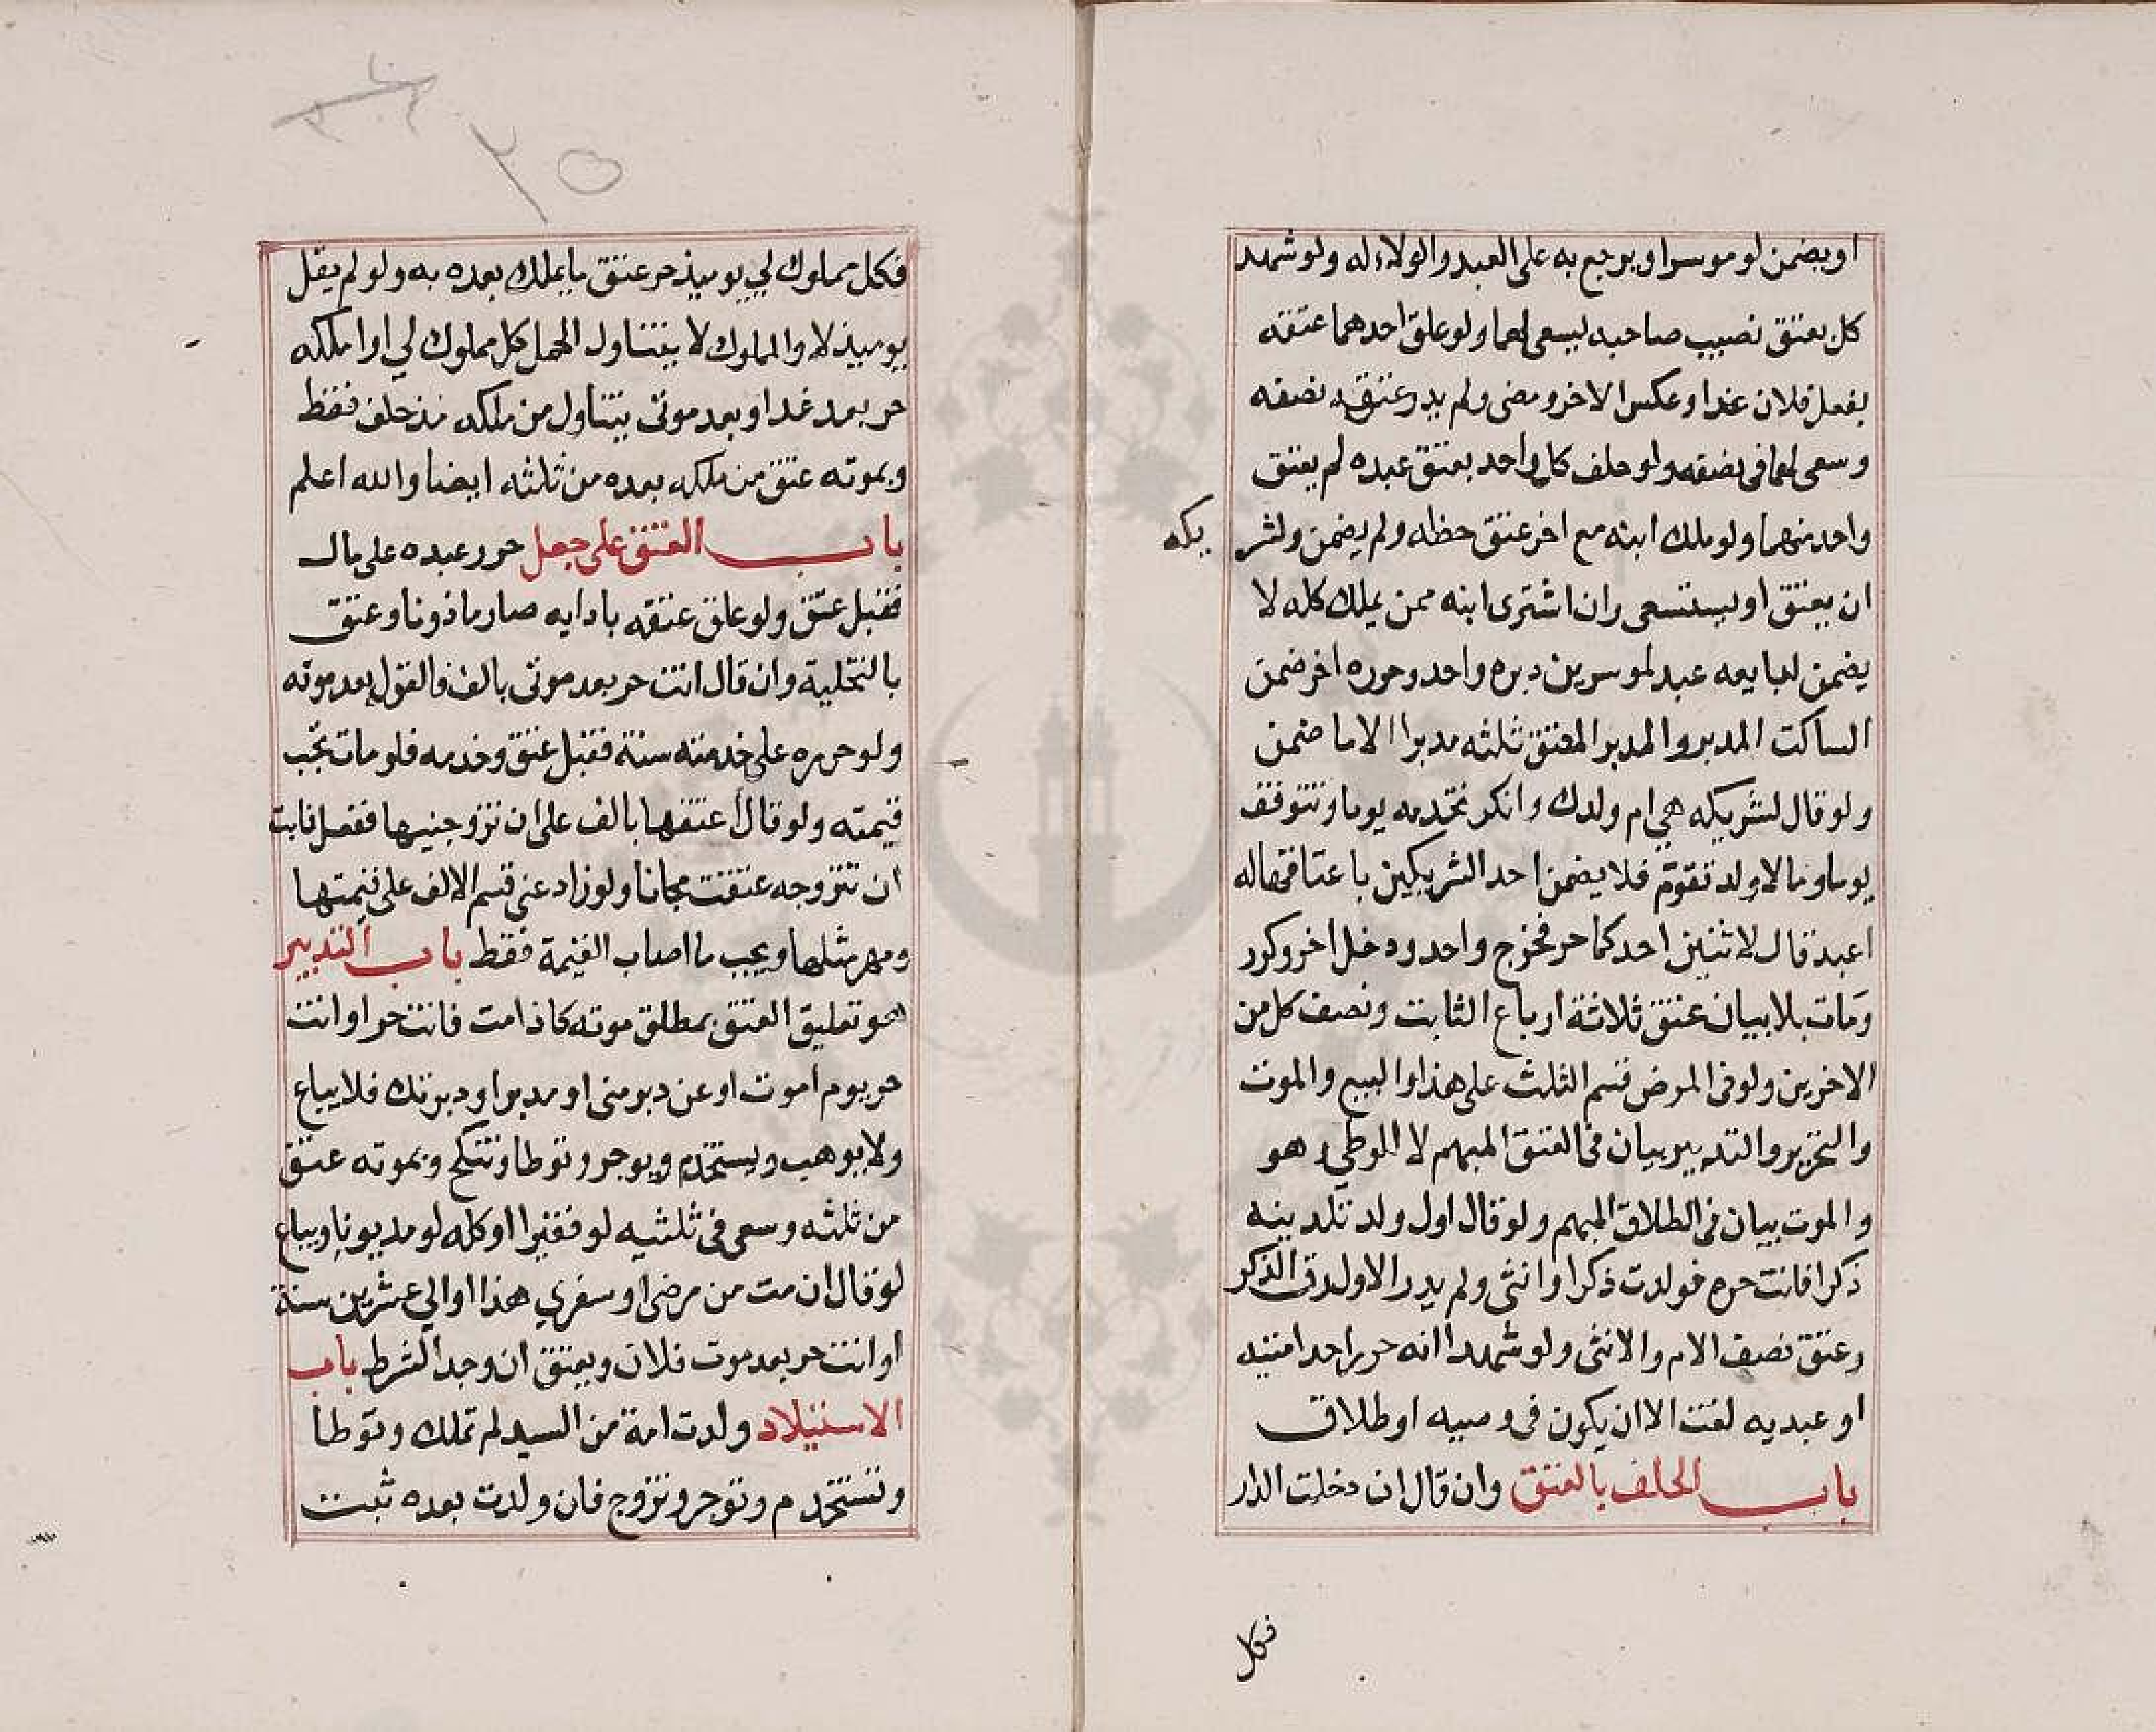 او يضمن لو موسرا ويرجع به على العبد والولاء له ولو شهد
كل بعتق نصيب صاحبه ليسعى لهما ولو علق احدهما عتقه
بفعل فلان غدا وعكس الاخر ومضى ولم يدر عتق نصفه
وسعى لهما فى نصفه ولو حلف كل واحد بعتق عبده لم يعتق
واحد منهما ولو ملك ابنه مع اخر عتق حظه ولم يضمن ولشر
يكه
ان يعتق او يستسعى وان اشترى ابنه ممن يملك كله لا
يضمن لبايعه عبد لموسرين دبره واحد وحرره اخر ضمن
الساكت المدبر والمدبر المعتق ثلثه مدبرا لا ما ضمن
ولو قال لشريكه هي ام ولدك وانكر تخدمه يوما وتتوقف
يوما وما لام ولد تقوم فلا يضمن احد الشريكين باعتاقها له
اعبد قال لاثنين احدكما حر فخرج واحد ودخل اخر وكرر
ومات بلا بيان عتق ثلاثة ارباع الثابت ونصف كل من
الاخرين ولو فى المرض قسم الثلث على هذا والبيع والموت
والتحرير والتدبير بيان فى العتق المبهم لا الوطي وهو
والموت بيان فى الطلاق المبهم ولو قال اول ولد تلدينه
ذكرا فانت حره فولدت ذكرا وانثى ولم يدر الاول رق الذكر
وعتق نصف الام والانثى ولو شهدا انه حرر احد امتيه
او عبديه لغت الا ان يكون فى وصيه او طلاق
باب الحلف بالعتق وان قال ان دخلت الدار
فكل
٢٥
فكل مملوك لي يوميذ حر عتق ما يملك بعده به ولو لم يقل
يوميذ لا والمملوك لا يتناول الحمل كل مملوك لي او املكه
حر بعد غد او بعد موتى يتناول من ملكه مذ حلف فقط
وبموته عتق من ملكه بعده من ثلثه ايضا والله اعلم
باب العتق على جعل حرر عبده على مال
فقبل عتق ولو علق عتقه بادايه صار ماذونا وعتق
بالتخلية وان قال انت حر بعد موتى بالف فالقول بعد موته
ولو حرره على خدمته سنة فقبل عتق وخدمه فلو مات تجب
قيمته ولو قال اعتقها بالف على ان تزوجنيها ففعل فابت
ان تتزوجه عتقت مجانا ولو زاد عني قسم الالف على قيمتها
ومهر مثلها ويجب ما اصاب القيمة فقط باب التدبير
هو تعليق العتق بمطلق موته كاذا مت فانت حر او انت
حر يوم اموت او عن دبر منى او مدبر او دبرتك فلا يباع
ولا يوهب ويستخدم ويوجر وتوطا وتنكح وبموته عتق
من ثلثه وسعى فى ثلثيه لو فقيرا او كله لو مديونا ويباع
لو قال ان مت من مرضى او سفري هذا او الي عشرين سنة
او انت حر بعد موت فلان ويعتق ان وجد الشرط باب
الاستيلاد ولدت امة من السيد لم تملك وتوطا
وتستخدم وتوجر وتزوج فان ولدت بعده ثبت